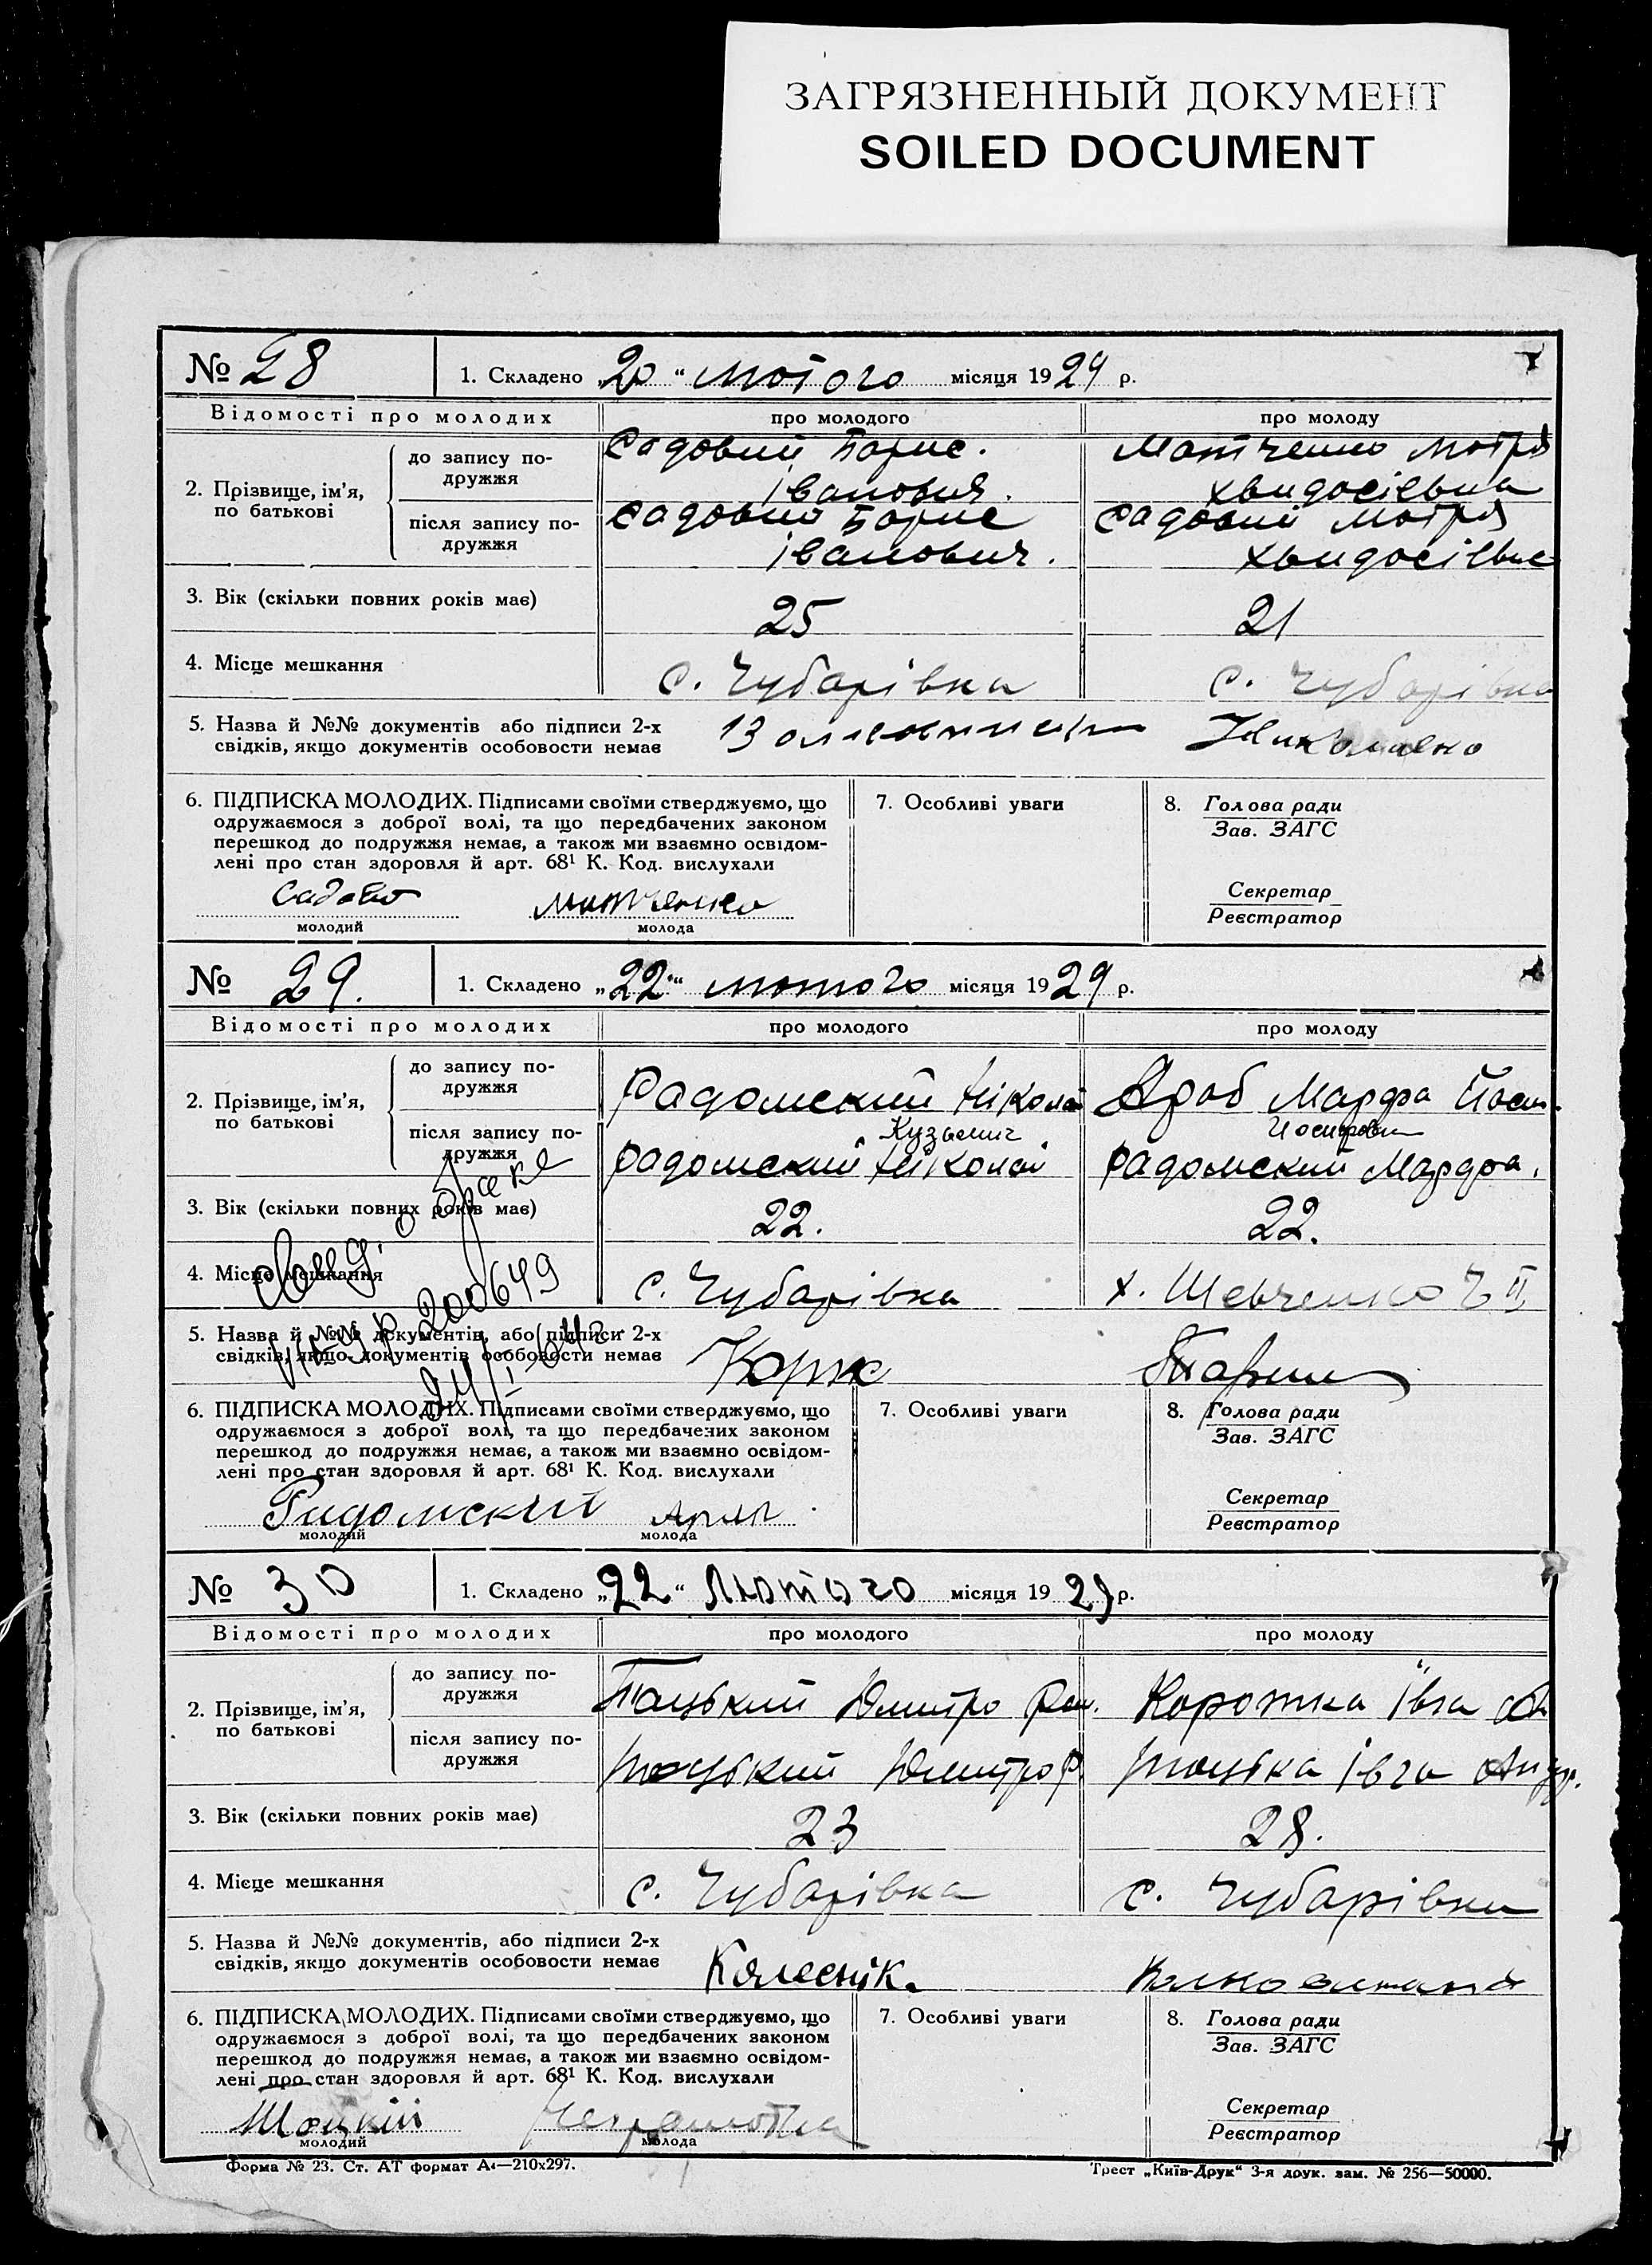 ЗАГРЯЗНЕННЫЙ ДОКУМЕНТ
SOILED DOCUMENT
№ 28 1. Складено „20“ лютого місяця 1929 р.
Відомості про молодих про молодого про молоду
2. Прізвище, ім’я, по батькові
до запису по-дружжя Садовий Борис Іванович. Матченко Мотря Хвидосіевна
після запису по-дружжя Садовий Борис Іванович. Садовий Мотря
3. Вік (скільки повних років має) 25 21
4. Місце мешкання с. Чубарівка с. Чубарівка
5. Назва й №№ документів або підписи 2-х
свідків, якщо документів особовости немає Николаенко
6. ПІДПИСКА МОЛОДИХ. Підписами своїми стверджуємо, що
одружаємося з доброї волі, та що передбачених законом
перешкод до подружжя немає, а також ми взаємно освідом-
лені про стан здоровля й арт. 68¹ К. Код. вислухали
7. Особливі уваги
8. Голова ради
Зав. ЗАГС
Секретар
Реєстратор
Матченко
молодий молода
№ 29. 1. Складено „22“ лютого місяця 1929 р.
Відомості про молодих про молодого про молоду
2. Прізвище, ім’я, по батькові
до запису по-дружжя Радомский Ніколай Араб Марфа Йосип.
після запису по-дружжя Радомский Ніколай Кузьмич Радомский Марфа.
3. Вік (скільки повних років має) 22. 22.
4. Місце мешкання с. Чубарівка х. Шевченко Ч II
Свид. о браке
200649
5. Назва й №№ документів, або підписи 2-х
свідків, якщо документів особовости немає Корж
6. ПІДПИСКА МОЛОДИХ. Підписами своїми стверджуємо, що
одружаємося з доброї волі, та що передбачених законом
перешкод до подружжя немає, а також ми взаємно освідом-
лені про стан здоровля й арт. 68¹ К. Код. вислухали
7. Особливі уваги
8. Голова ради
Зав. ЗАГС
Секретар
Реєстратор
Радомский
молодий молода
№ 30 1. Складено „22“ Лютого місяця 1929 р.
Відомості про молодих про молодого про молоду
2. Прізвище, ім’я, по батькові
до запису по-дружжя Тоцький Дмитро Коротка Івга
після запису по-дружжя Тоцький Дмитро Тоцька Івга Андр.
3. Вік (скільки повних років має) 23 28.
4. Місце мешкання с. Чубарівка с. Чубарівка
5. Назва й №№ документів, або підписи 2-х
свідків, якщо документів особовости немає Колеснік.
6. ПІДПИСКА МОЛОДИХ. Підписами своїми стверджуємо, що
одружаємося з доброї волі, та що передбачених законом
перешкод до подружжя немає, а також ми взаємно освідом-
лені про стан здоровля й арт. 68¹ К. Код. вислухали
7. Особливі уваги
8. Голова ради
Зав. ЗАГС
Секретар
Реєстратор
Тоцкій Неграмотна
молодий молода
Форма № 23. Ст. АТ формат А4—210х297. Трест „Київ-Друк“ 3-я друк. зам. № 256—50000.